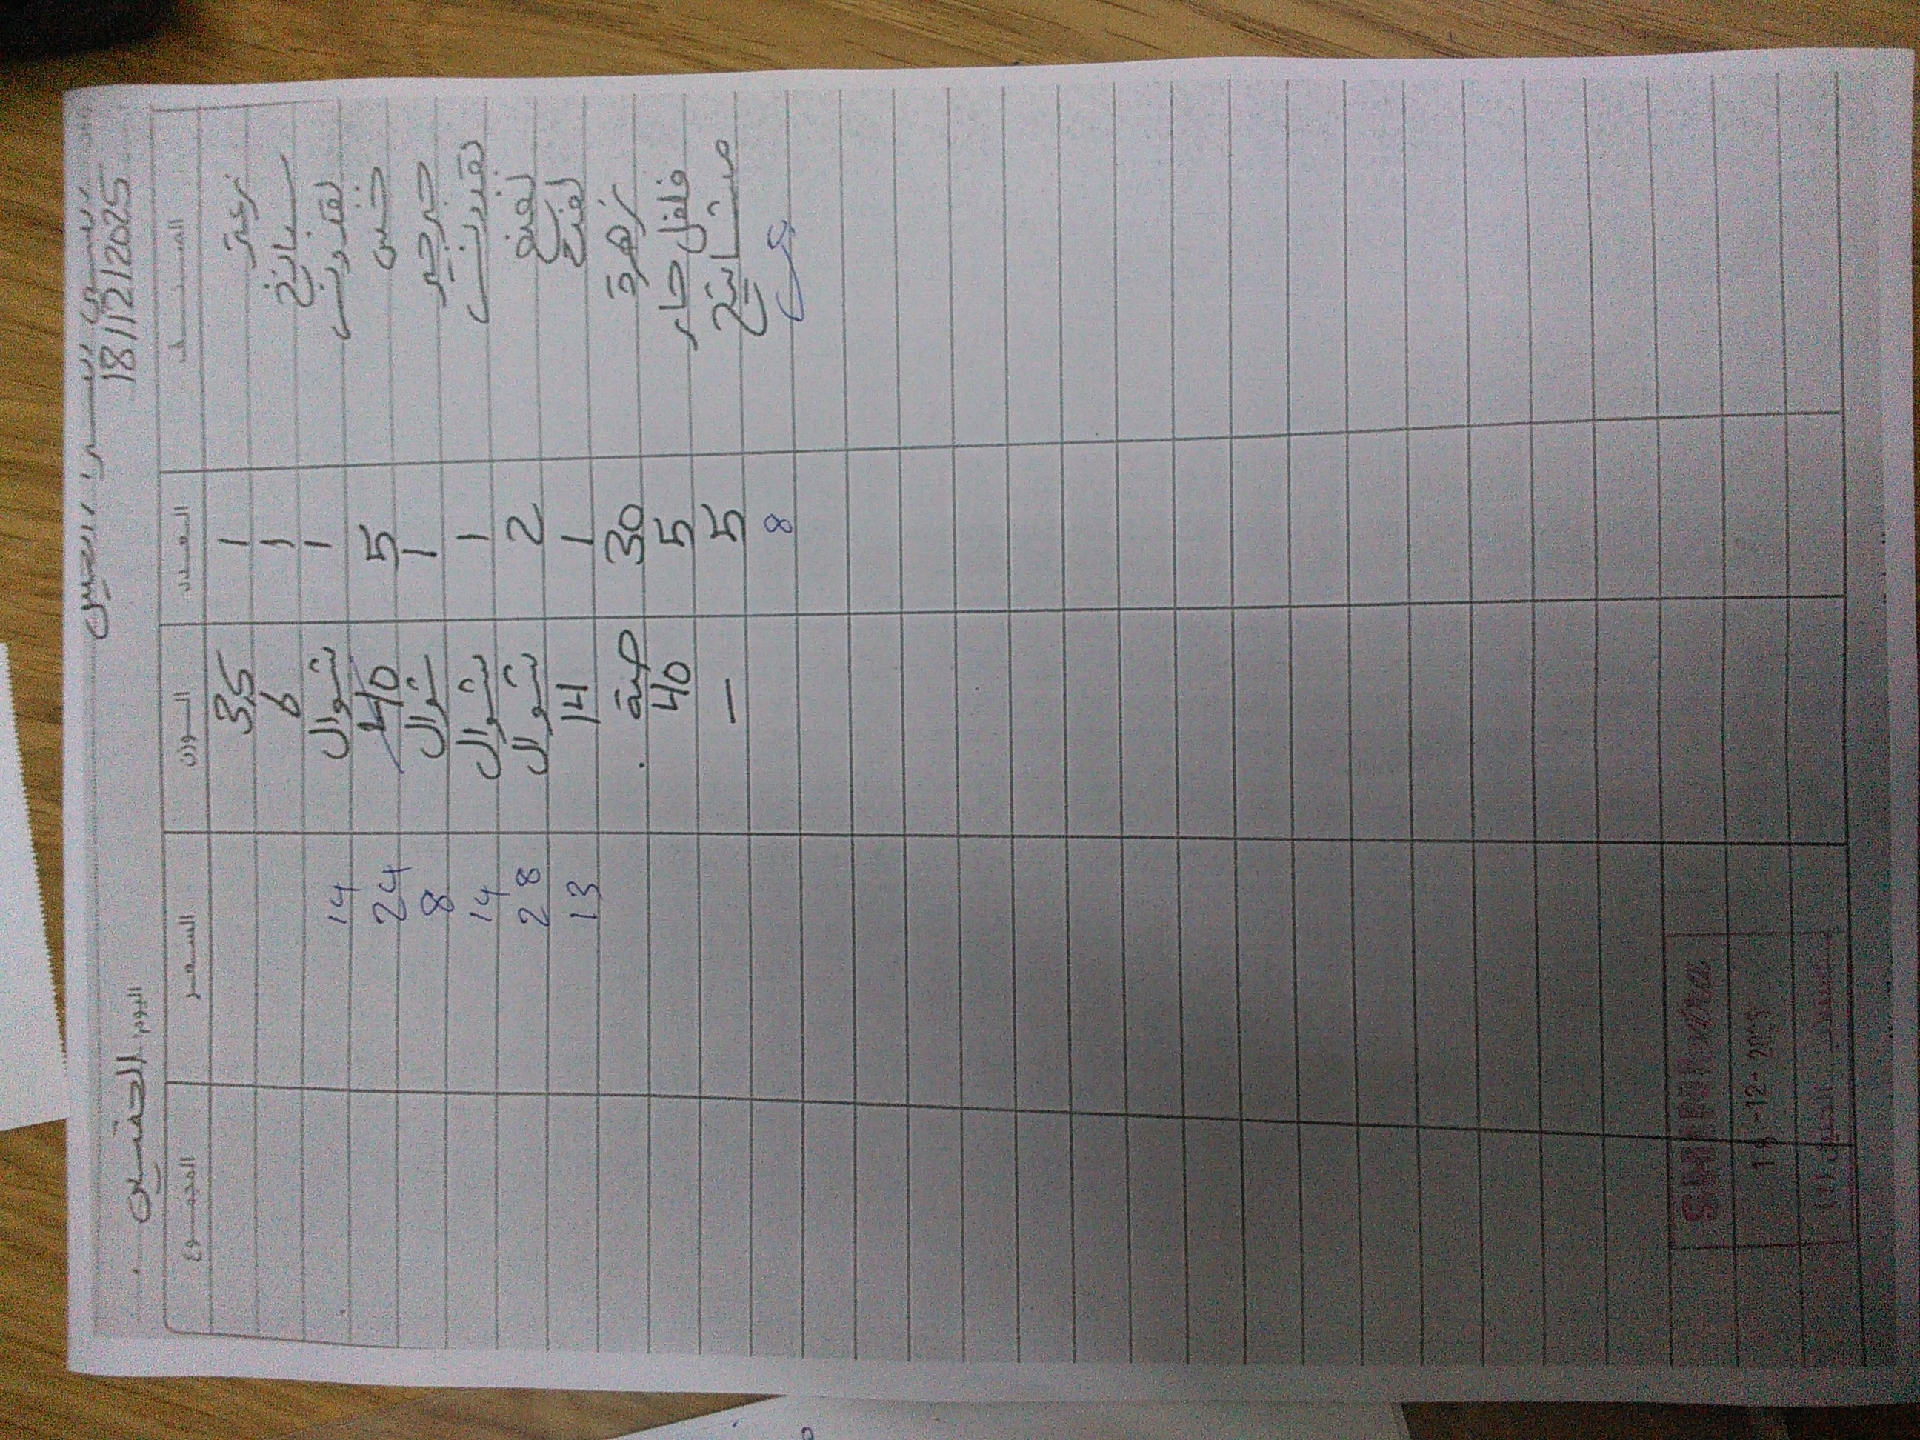 18/12/2025
اليوم: الخميس
الصنف العدد الوزن السعر المجموع
زعتر 1 35
سبانخ 1 6
بقدونس 1 شوال 14
خس 5 40 24
جرجير 1 شوال 8
بقدونس 1 شوال 14
نعنع 2 شوال 28
نعنع 1 14 13
زهرة 30 حبة
فلفل حار 5 40
5 —
8
18-12-2025